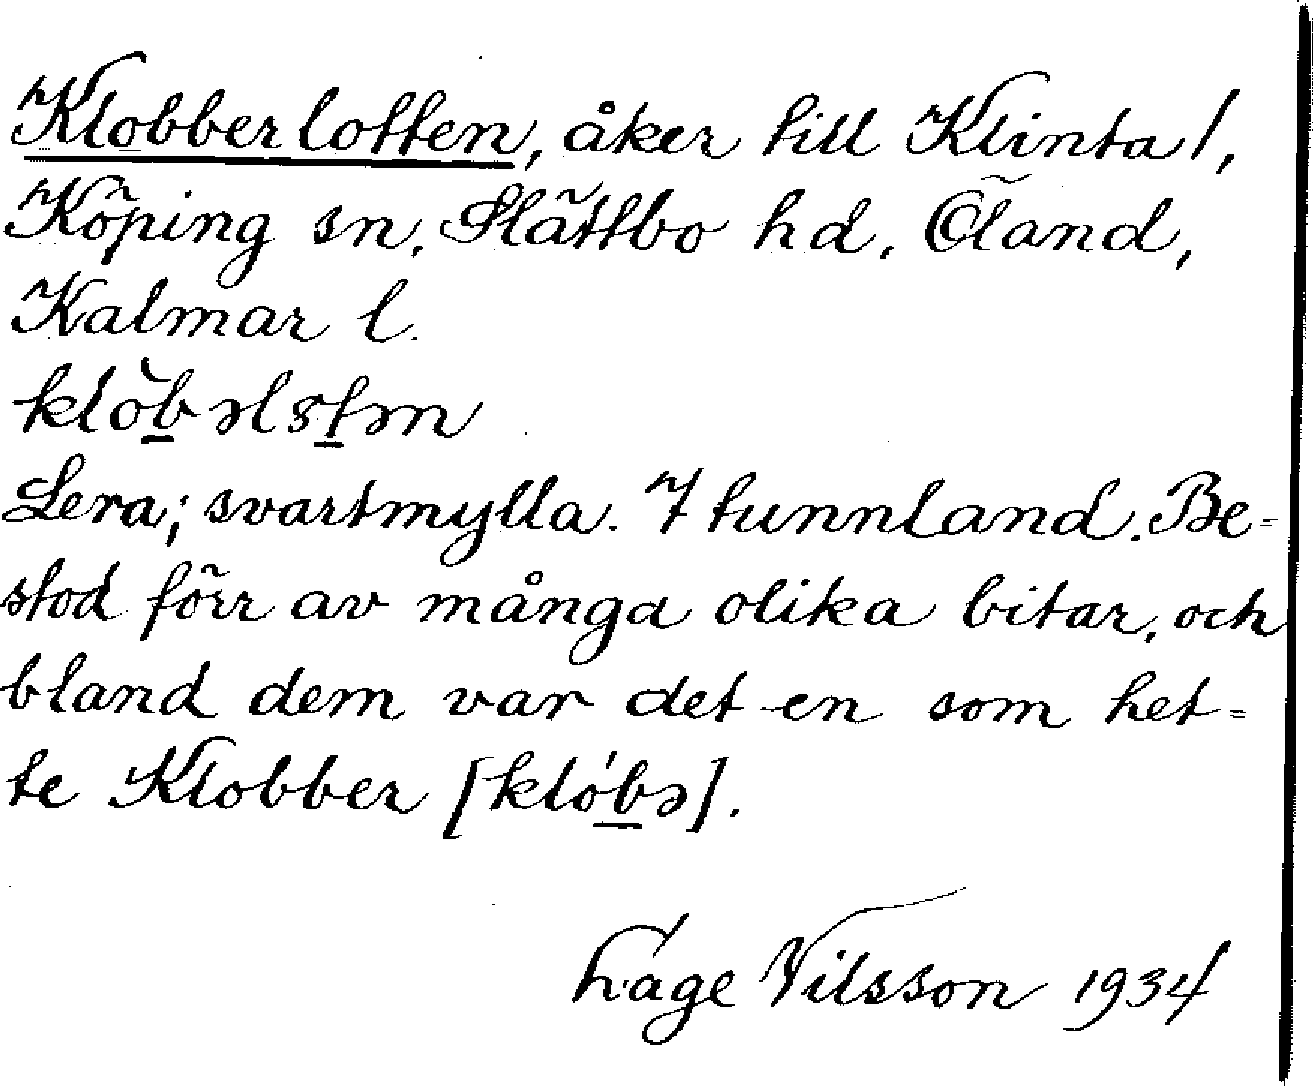 Klobberlotten, åker till Klinta 1,
Köping sn, Slättbo hd, Öland,
Kalmar l.
Lera; svartmylla. 7 tunnland. Be-
stod förr av många olika bitar, och
bland dem var det en som het-
te Klobber [klóbə].
Åge Nilsson 1934